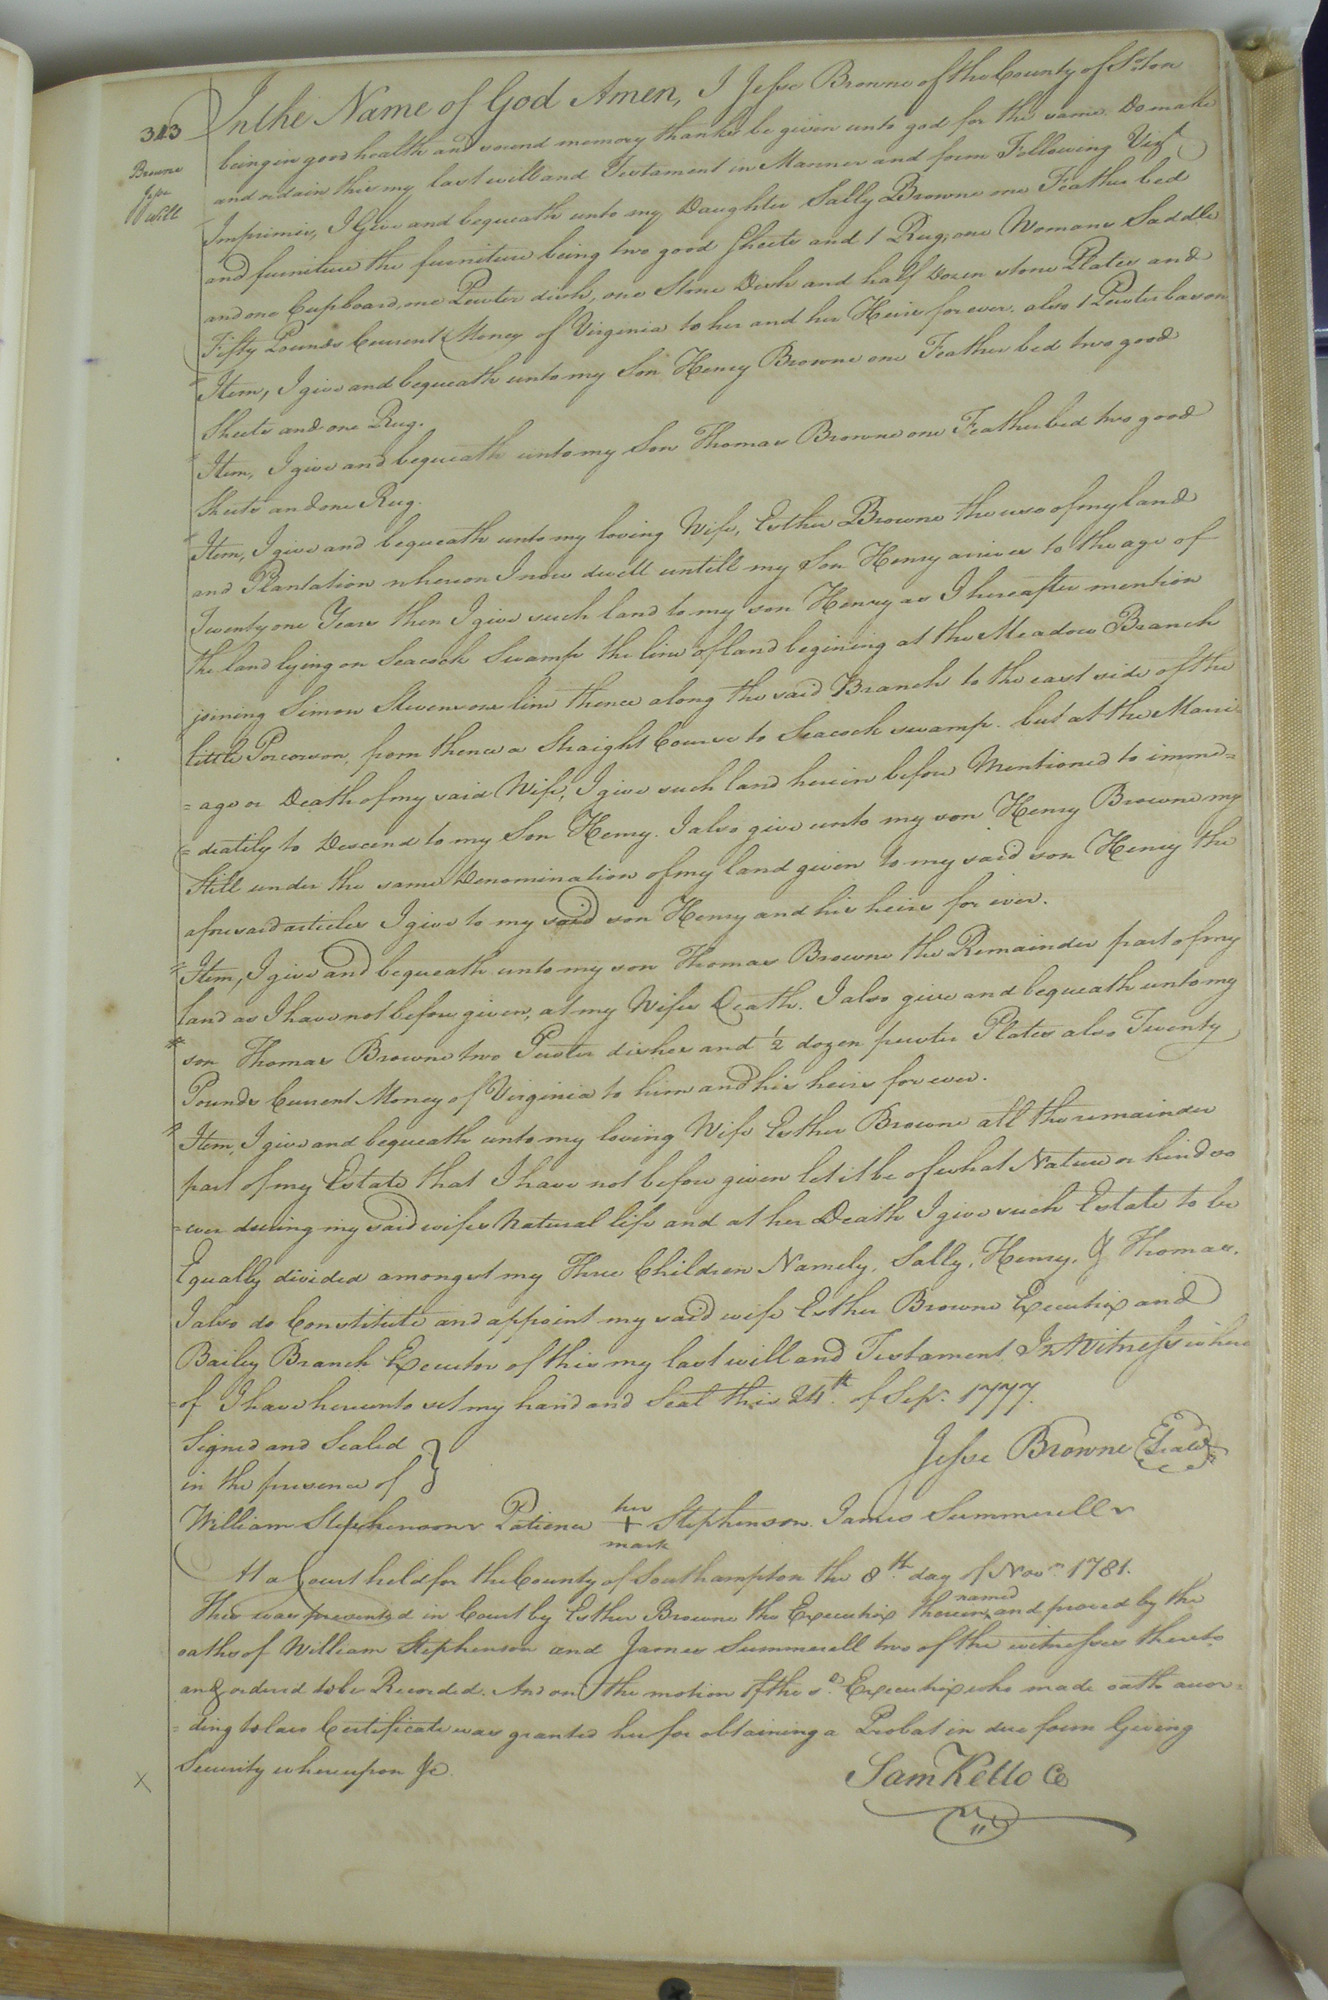 343
Browne
Jesse
Will
In the Name of God Amen, I Jesse Browne of the County of S:ton
being in good health and sound memory thanks be given unto god for the same. Do make
and ordain this my last will and Testament in Manner and form Following Vizt
Imprimis, I Give and bequeath unto my Daughter Sally Browne one Feather bed
and furniture the furniture being two good sheets and 1 Rug, one Womans Saddle
and one Cupboard, one Pewter dish, one Stone Dish and half Dozen stone Plates and
Fifty Pounds Current Money of Virginia to her and her Heirs for ever. also 1 Pewter bason
Item, I give and bequeath unto my Son Henry Browne one Feather bed two good
Sheets and one Rug.
Item, I give and bequeath unto my Son Thomas Browne one Feather bed two good
Sheets and one Rug.
Item, I give and bequeath unto my loving Wife, Esther Browne the use of my land
and Plantation whereon I now dwell untill my Son Henry arives to the age of
Twenty one Years then I give such land to my son Henry as I hereafter mention
the land lying on Seacock Swamp the line of land begining at the Meadow Branch
joining Simon Stevensons line thence along the said Branch to the east side of the
little Porcorson, from thence a Straight Course to Seacock swamp. but at the Marri
= age or Death of my said Wife, I give such land herein before Mentioned to imme=
= diatily to Descend to my Son Henry. I also give unto my son Henry Browne my
Still under the same Denomination of my land given to my said son Henry the
aforesaid articles I give to my said son Henry and his heirs for ever.
Item, I give and bequeath unto my son Thomas Browne the Remainder part of my
land as I have not before given, at my Wifes Death. I also give and bequeath unto my
son Thomas Browne two Pewter dishes and ½ dozen pewter Plates also Twenty
Pounds Current Money of Virginia to him and his heirs for ever.
Item, I give and bequeath unto my loving Wife Esther Browne all the remainder
part of my Estate that I have not before given let it be of what Nature or kind so
= ever during my said wifes Natural life and at her Death I give such Estate to be
Equally divided amongst my Three Children Namely, Sally, Henry, & Thomas.
I also do Constitute and appoint my said wife Esther Browne Executrix and
Bailey Branch Executor of this my last will and Testament. In Witness where
= of I have hereunto set my hand and Seal this 24th. of Sepr. 1777.
Signed and Sealed }
in the presence of
Jesse Browne (Seal)
William Stephenson Patience her + mark Stephenson. James Summerell
At a Court held for the County of Southampton the 8th. day of Novr 1781.
This was presented in Court by Esther Browne the Executrix therein named and proved by the
oaths of William Stephenson and James Summerell two of the witnesses thereto
and ordered to be Recorded. And on the motion of the sd. Executrix who made oath accor=
= ding to law Certificate was granted her for obtaining a Probat in due form Giving
Security whereupon &c.
Sam Kello CC
X